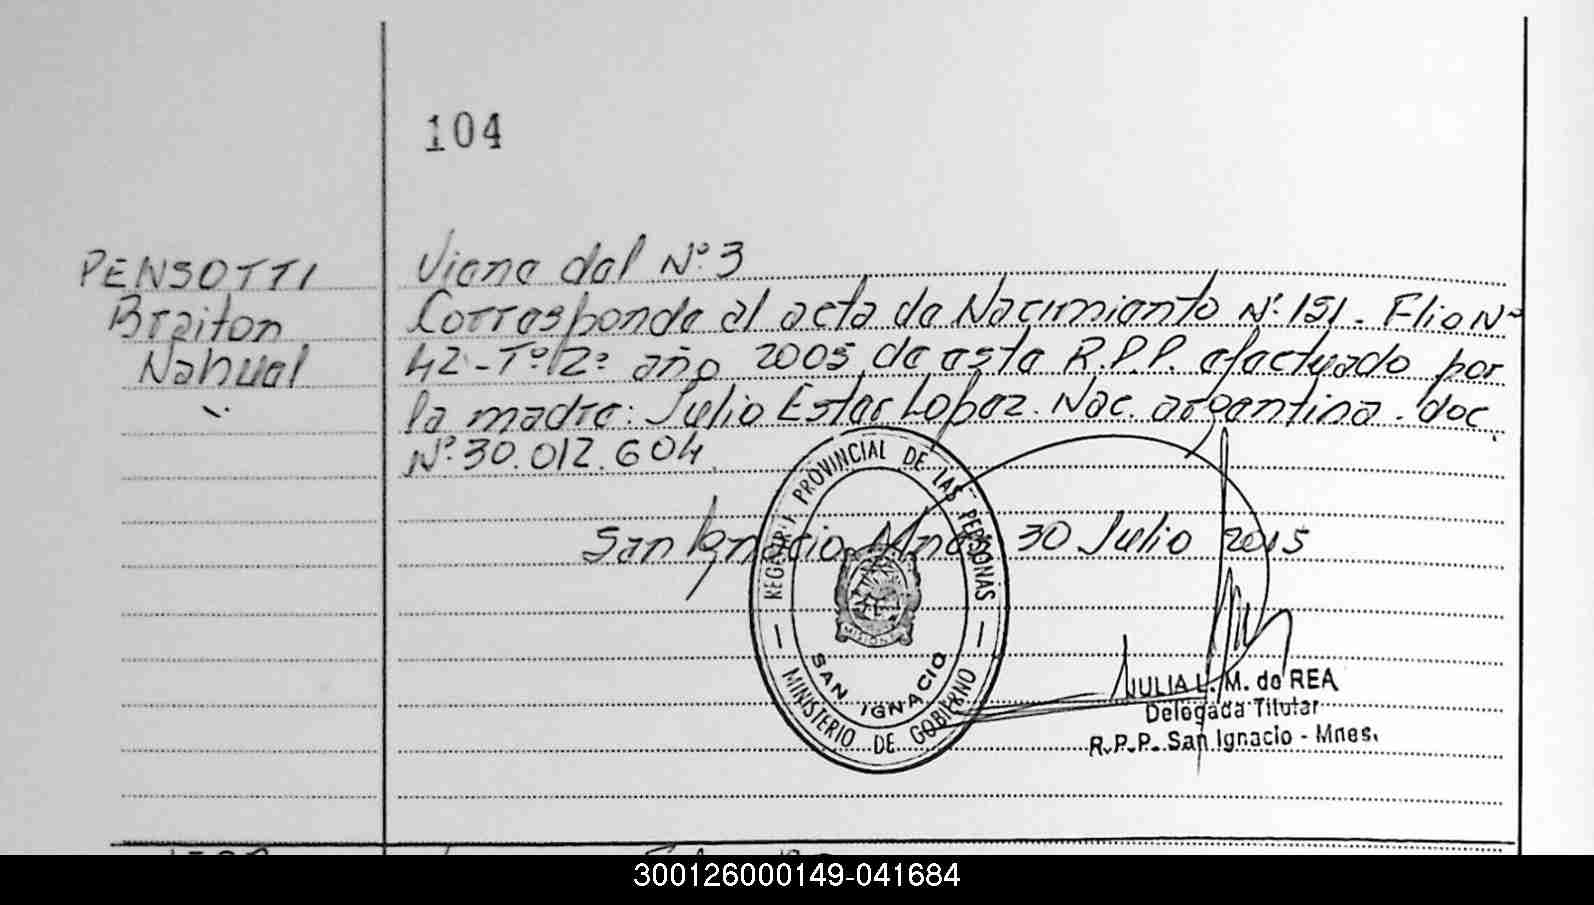 104
PENSOTTI
Braiton
Nahuel
Viene del Nº 3
Corresponde al acta de Nacimiento Nº 151. Flio Nº
42 - Tº: 2º año 2005 de esta R.P.P. efectuado por
la madre: Julio Ester Lopez. Nac. argentina. doc.
Nº 30.012.604
San Ignacio, Mnes 30 Julio 2015
REGISTRO PROVINCIAL DE LAS PERSONAS
MISIONES
SAN IGNACIO
MINISTERIO DE GOBIERNO
JULIA L. M. de REA
Delegada Titular
R.P.P. San Ignacio - Mnes.
300126000149-041684